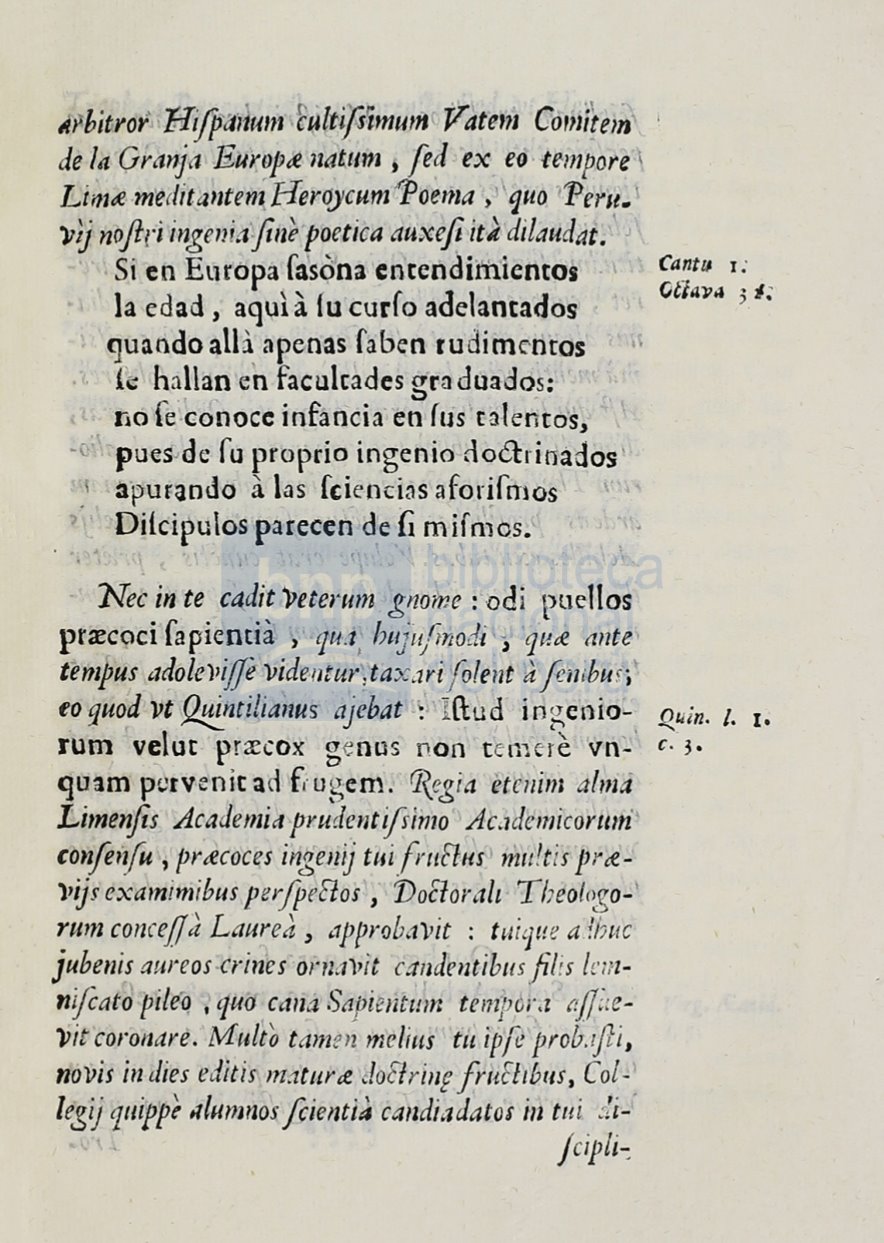 arbitror Hiſpanum cultiſsimum Vatem Comitem
de la Granja Europæ natum , ſed ex eo tempore
Limæ meditantem Heroycum Poema , quo Peru-
vij noſtri ingenia ſinè poetica auxeſi ità dilaudat.
Si en Europa ſasòna entendimientos
la edad , aquì à ſu curſo adelantados
quando allà apenas ſaben rudimentos
ſe hallan en facultades graduados:
no ſe conoce infancia en ſus talentos,
pues de ſu proprio ingenio doctrinados
apurando à las ſciencias aforiſmos
Diſcipulos parecen de ſi miſmos.
Cantu 1.
Octava
biblioteca
Nec in te cadit veterum gnome : odi puellos
præcoci ſapientià , qua hujuſmodi , quæ ante
tempus adoleviſſe videntur, taxari ſolent à ſenibus;
eo quod vt Quintilianus ajebat : Iſtud ingenio-
rum velut præcox genus non temerè vn-
quam pervenit ad frugem. Regia etenim alma
Quin. l. 1.
c. 3.
Limenſis Academia prudentiſsimo Academicorum
conſenſu , præcoces ingenij tui fructus multis præ-
vijs examimibus perſpectos , Doctorali Theologo-
rum conceſſà Laureà , approbavit : tuique adhuc
jubenis aureos crines ornavit candentibus filis lem-
niſcato pileo , quo cana Sapientum tempora aſſue-
vit coronare. Multò tamen melius tu ipſe probaſti,
novis in dies editis maturæ doctrinę fructibus, Col-
legij quippè alumnos ſcientià candiadatos in tui di-
ſcipli-